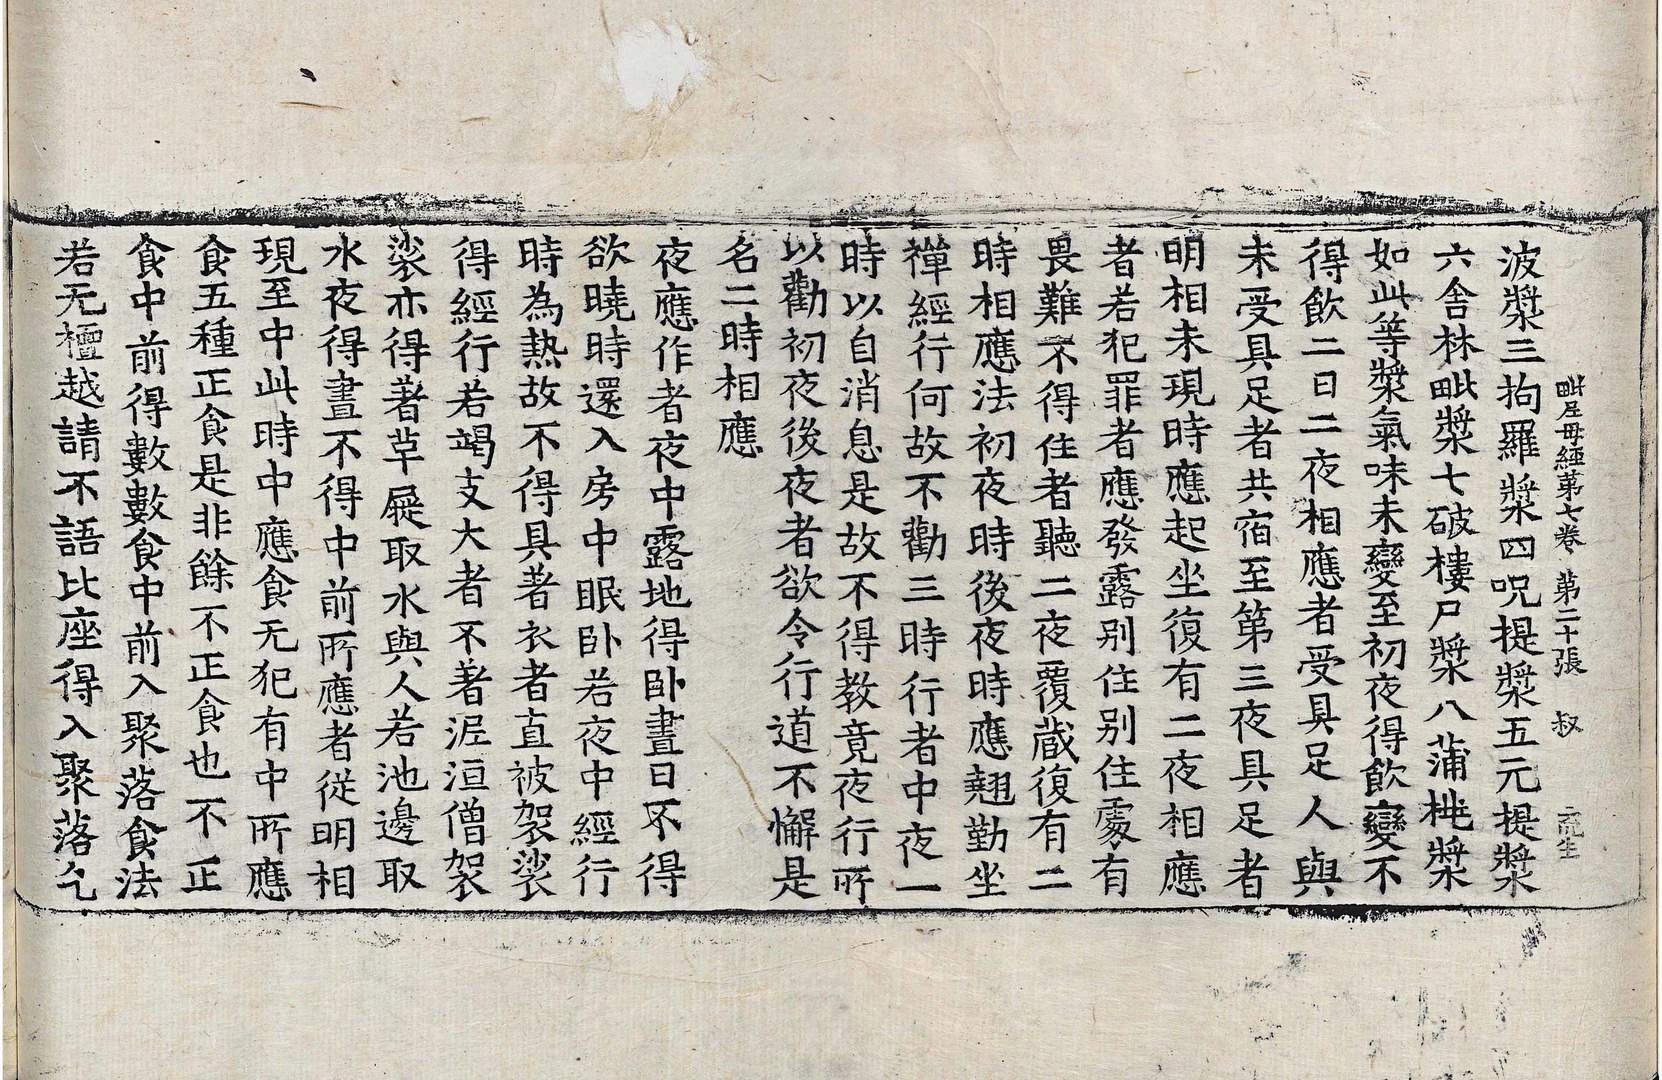 毗尼母經第七卷 第二十張 叔
波漿三拘羅漿四呪提漿五元提漿
六舍林毗漿七破樓尸漿八蒲桃漿
如此等漿氣味未變至初夜得飲變不
得飲二日二夜相應者受具足人與
未受具足者共宿至第三夜具足者
明相未現時應起坐復有二夜相應
者若犯罪者應發露別住別住處有
畏難不得住者聽二夜覆藏復有二
時相應法初夜時後夜時應翹勤坐
禪經行何故不勸三時行者中夜一
時以自消息是故不得教竟夜行所
以勸初夜後夜者欲令行道不懈是
名二時相應
夜應作者夜中露地得卧晝日不得
欲曉時還入房中眠卧若夜中經行
時為熱故不得具著衣者直被袈裟
得經行若竭支大者不著涺洹僧袈
裟亦得著草屣取水與人若池邊取
水夜得晝不得中前所應者從明相
現至中此時中應食无犯有中所應
食五種正食是非餘不正食也不正
食中前得數數食中前入聚落食法
若无檀越請不語比座得入聚落乞